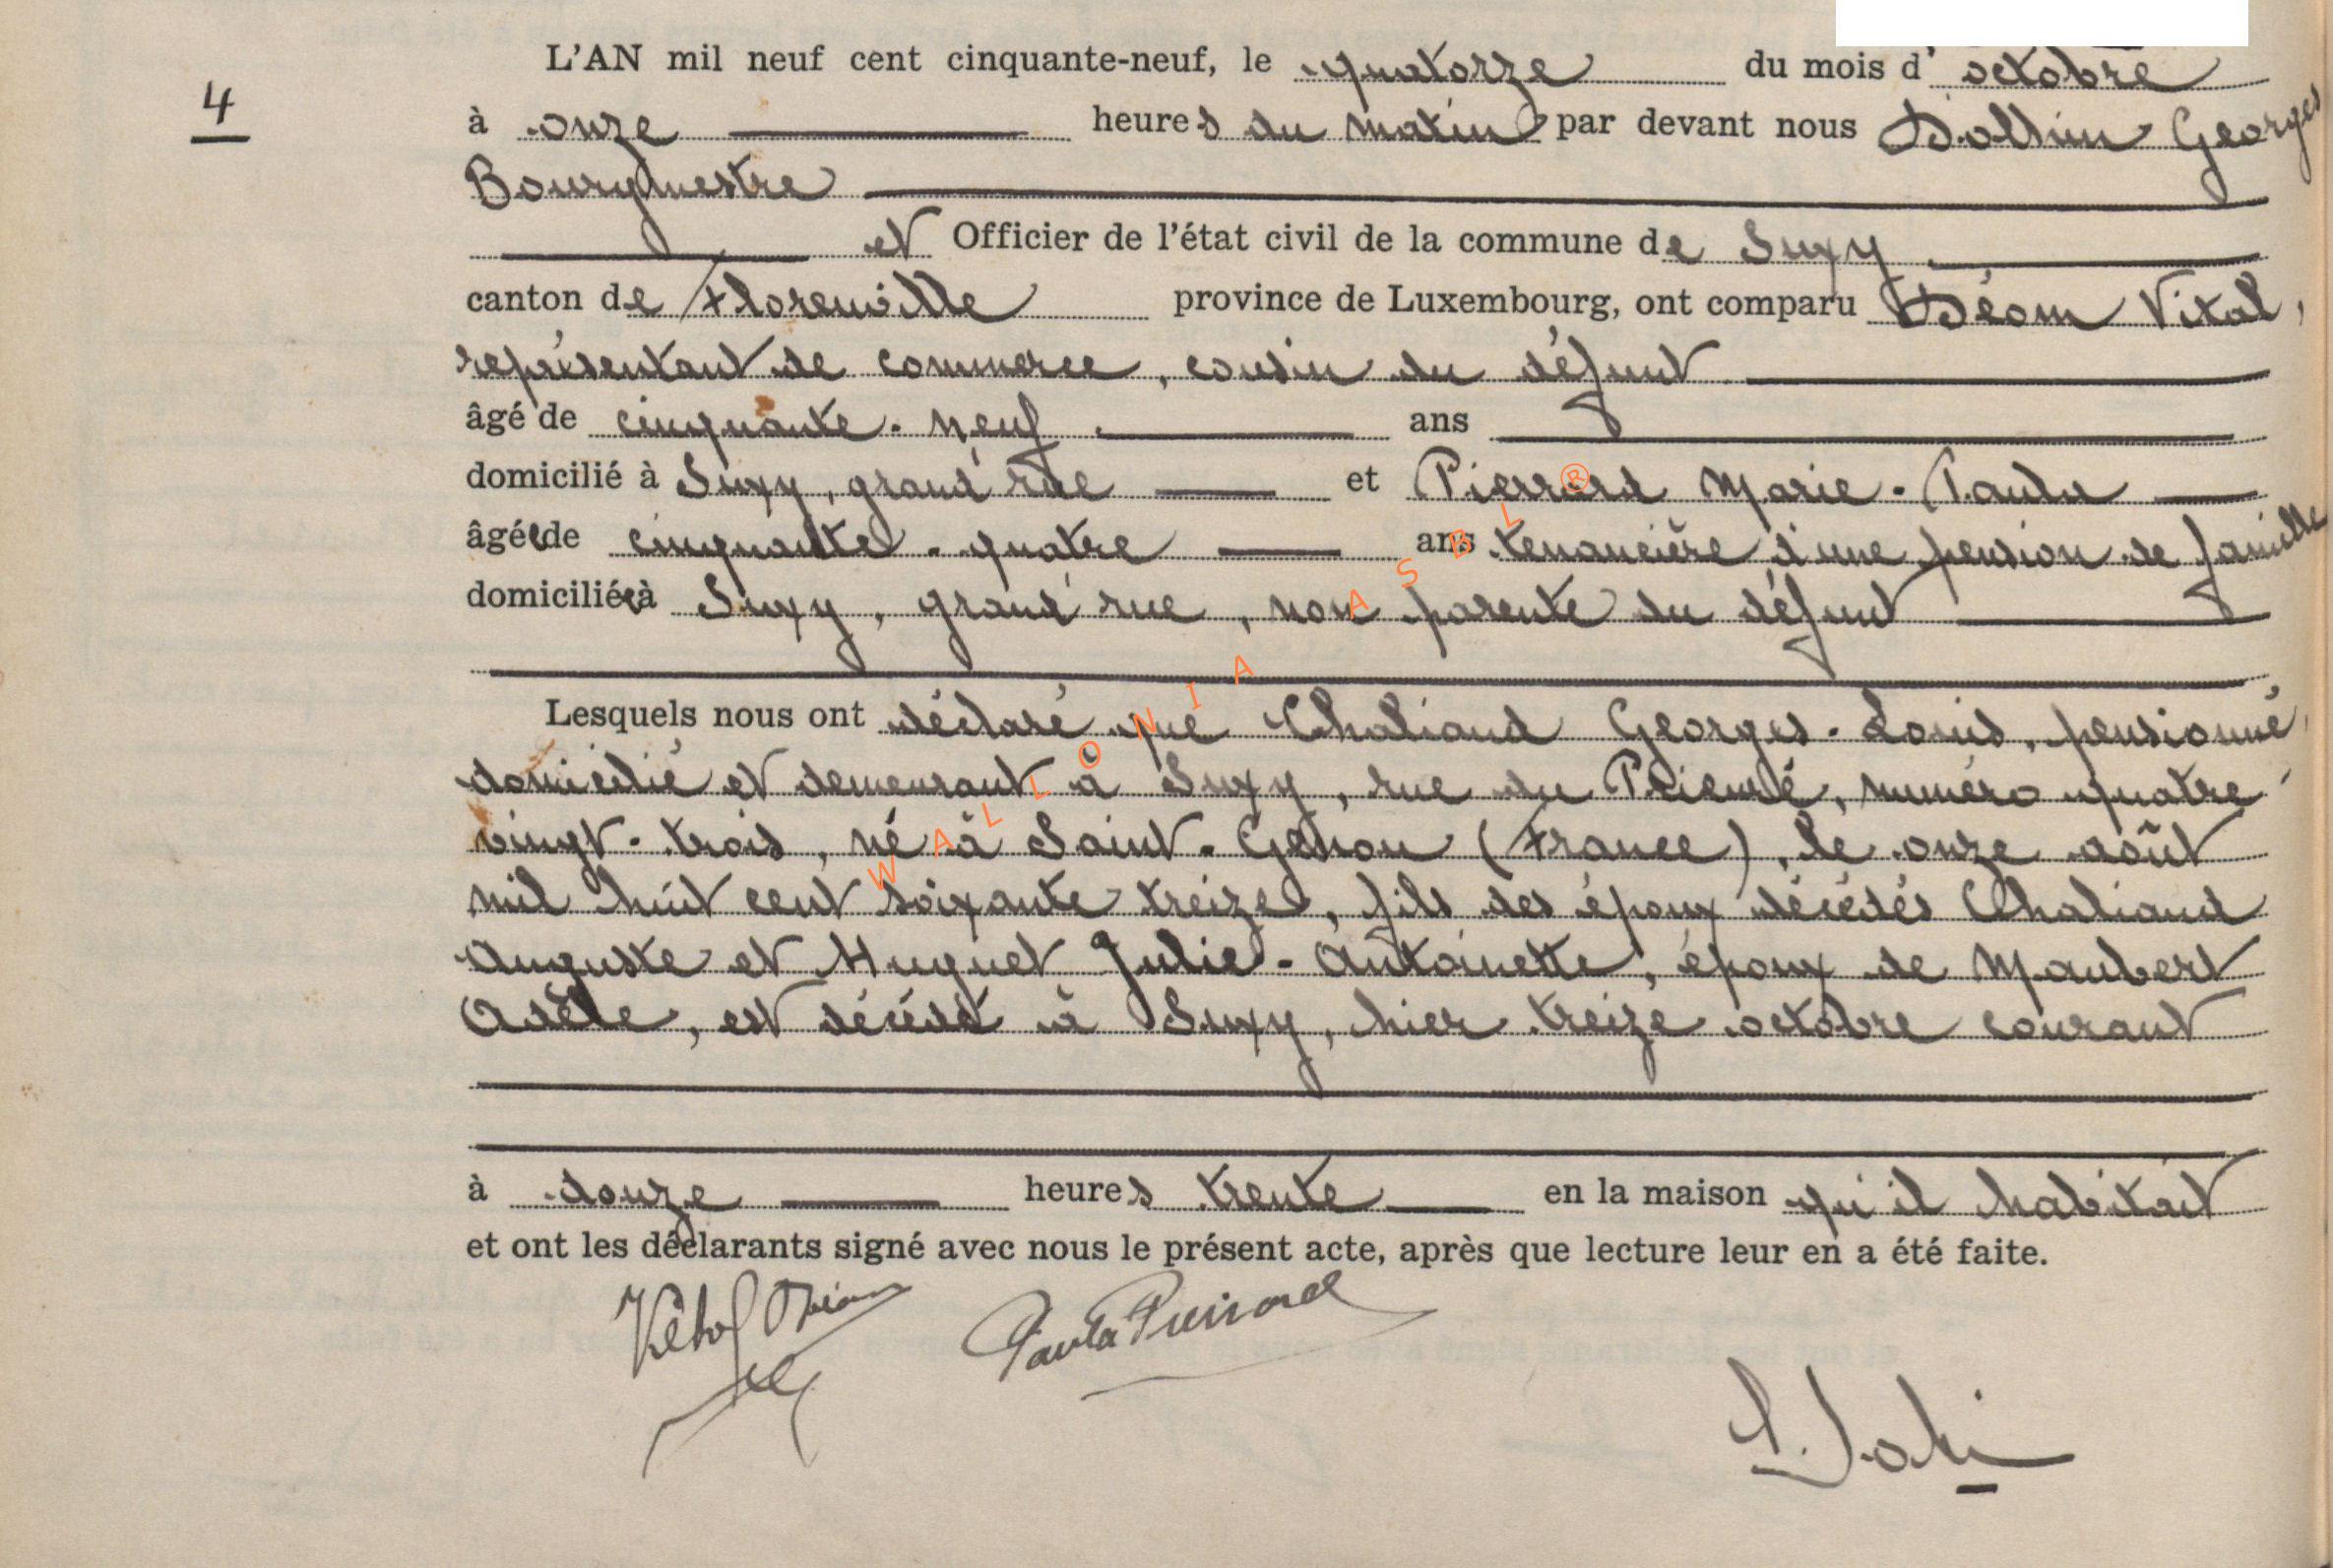 L'AN mil neuf cent cinquante-neuf, le quatorze du mois d' octobre
4
à onze heures du matin par devant nous Georges
Bourgmestre
et Officier de l'état civil de la commune de Suxy
canton de Florenville province de Luxembourg, ont comparu Déom Vital,
représentant de commerce, cousin du défunt
âgé de cinquante-neuf ans
domicilié à Suxy, grand'rue et Pierrard Marie-Paula
âgée de cinquante-quatre ans tenancière d'une pension de famille
domiciliée à Suxy, grand'rue, non parente du défunt
Lesquels nous ont déclaré que Chaliaud Georges-Louis, pensionné,
domicilié et demeurant à Suxy, rue du Prieuré, numéro quatre-
vingt-trois, né à Saint- (France), le onze août
mil huit cent soixante treize, fils des époux décédés Chaliaud
Auguste et Huguet Julie-Antoinette, époux de Maubert
Adèle, est décédé à Suxy, hier treize octobre courant
à douze heures trente en la maison qu'il habitait
et ont les déclarants signé avec nous le présent acte, après que lecture leur en a été faite.
Vital Déom Paula Pierrard
WALLONIA ASBL ®